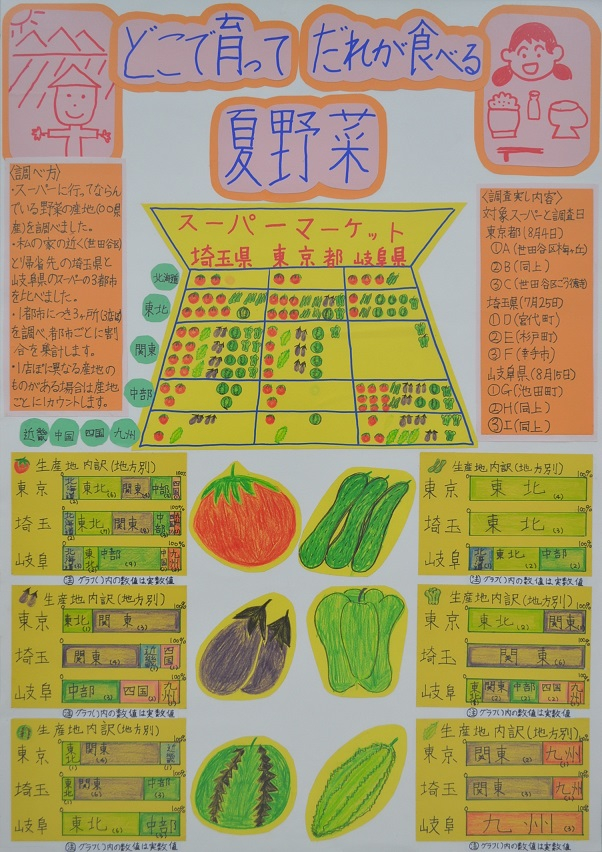 どこで育って だれが食べる
夏野菜
〈調べ方〉
・スーパーに行ってならん
でいる野菜の産地(〇〇県
産)を調べました。
・私の家の近く(世田谷区)
と帰省先の埼玉県と
岐阜県のスーパーの3都市
を比べました。
・1都市につき3ヶ所(3店)
を調べ、都市ごとに割
合を集計します。
・1店ほで異なる産地の
ものがある場合は産地
ごとに1カウントします。
スーパーマーケット
埼玉県 東京都 岐阜県
北海道
東北
関東
中部
近畿 中国 四国 九州
〈調査実し内容〉
対象スーパーと調査日
東京都(8月4日)
①A(世田谷区梅ヶ丘)
②B(同上)
③C(世田谷区
埼玉県(7月25日)
①D(宮代町)
②E(杉戸町)
③F(幸手市)
岐阜県(8月15日)
①G(池田町)
②H(同上)
③I(同上)
生産地内訳(地方別)
0 100%
東京 北海道 東北 関東 中部 四国
埼玉 北海道 東北 関東 中部
岐阜 北海道 東北 中部 四国 九州
注グラフ( )内の数値は実数値
生産地内訳(地方別)
0 100%
東京 東北(4)
埼玉 東北(3)
岐阜 北海道(1) 東北(2) 中部(2)
注グラフ( )内の数値は実数値
生産地内訳(地方別)
0 100%
東京 東北(1) 関東(3)
埼玉 関東(4) 近畿(1) 四国
岐阜 中部(3) 四国(2) 九州(1)
注グラフ( )内の数値は実数値
生産地内訳(地方別)
0 100%
東京 東北(2) 関東
埼玉 関東(6)
岐阜 東北(1) 関東(2) 中部(2) 四国(2) 九州(1)
注グラフ( )内の数値は実数値
生産地内訳(地方別)
0 100%
東京 東北(1) 関東(4) 近畿
埼玉 東北(1) 関東(6) 中部
岐阜 東北(6) 中部
注グラフ( )内の数値は実数値
生産地内訳(地方別)
0 100%
東京 関東(2) 九州(1)
埼玉 関東(3) 九州(1)
岐阜 九州(3)
注グラフ( )内の数値は実数値